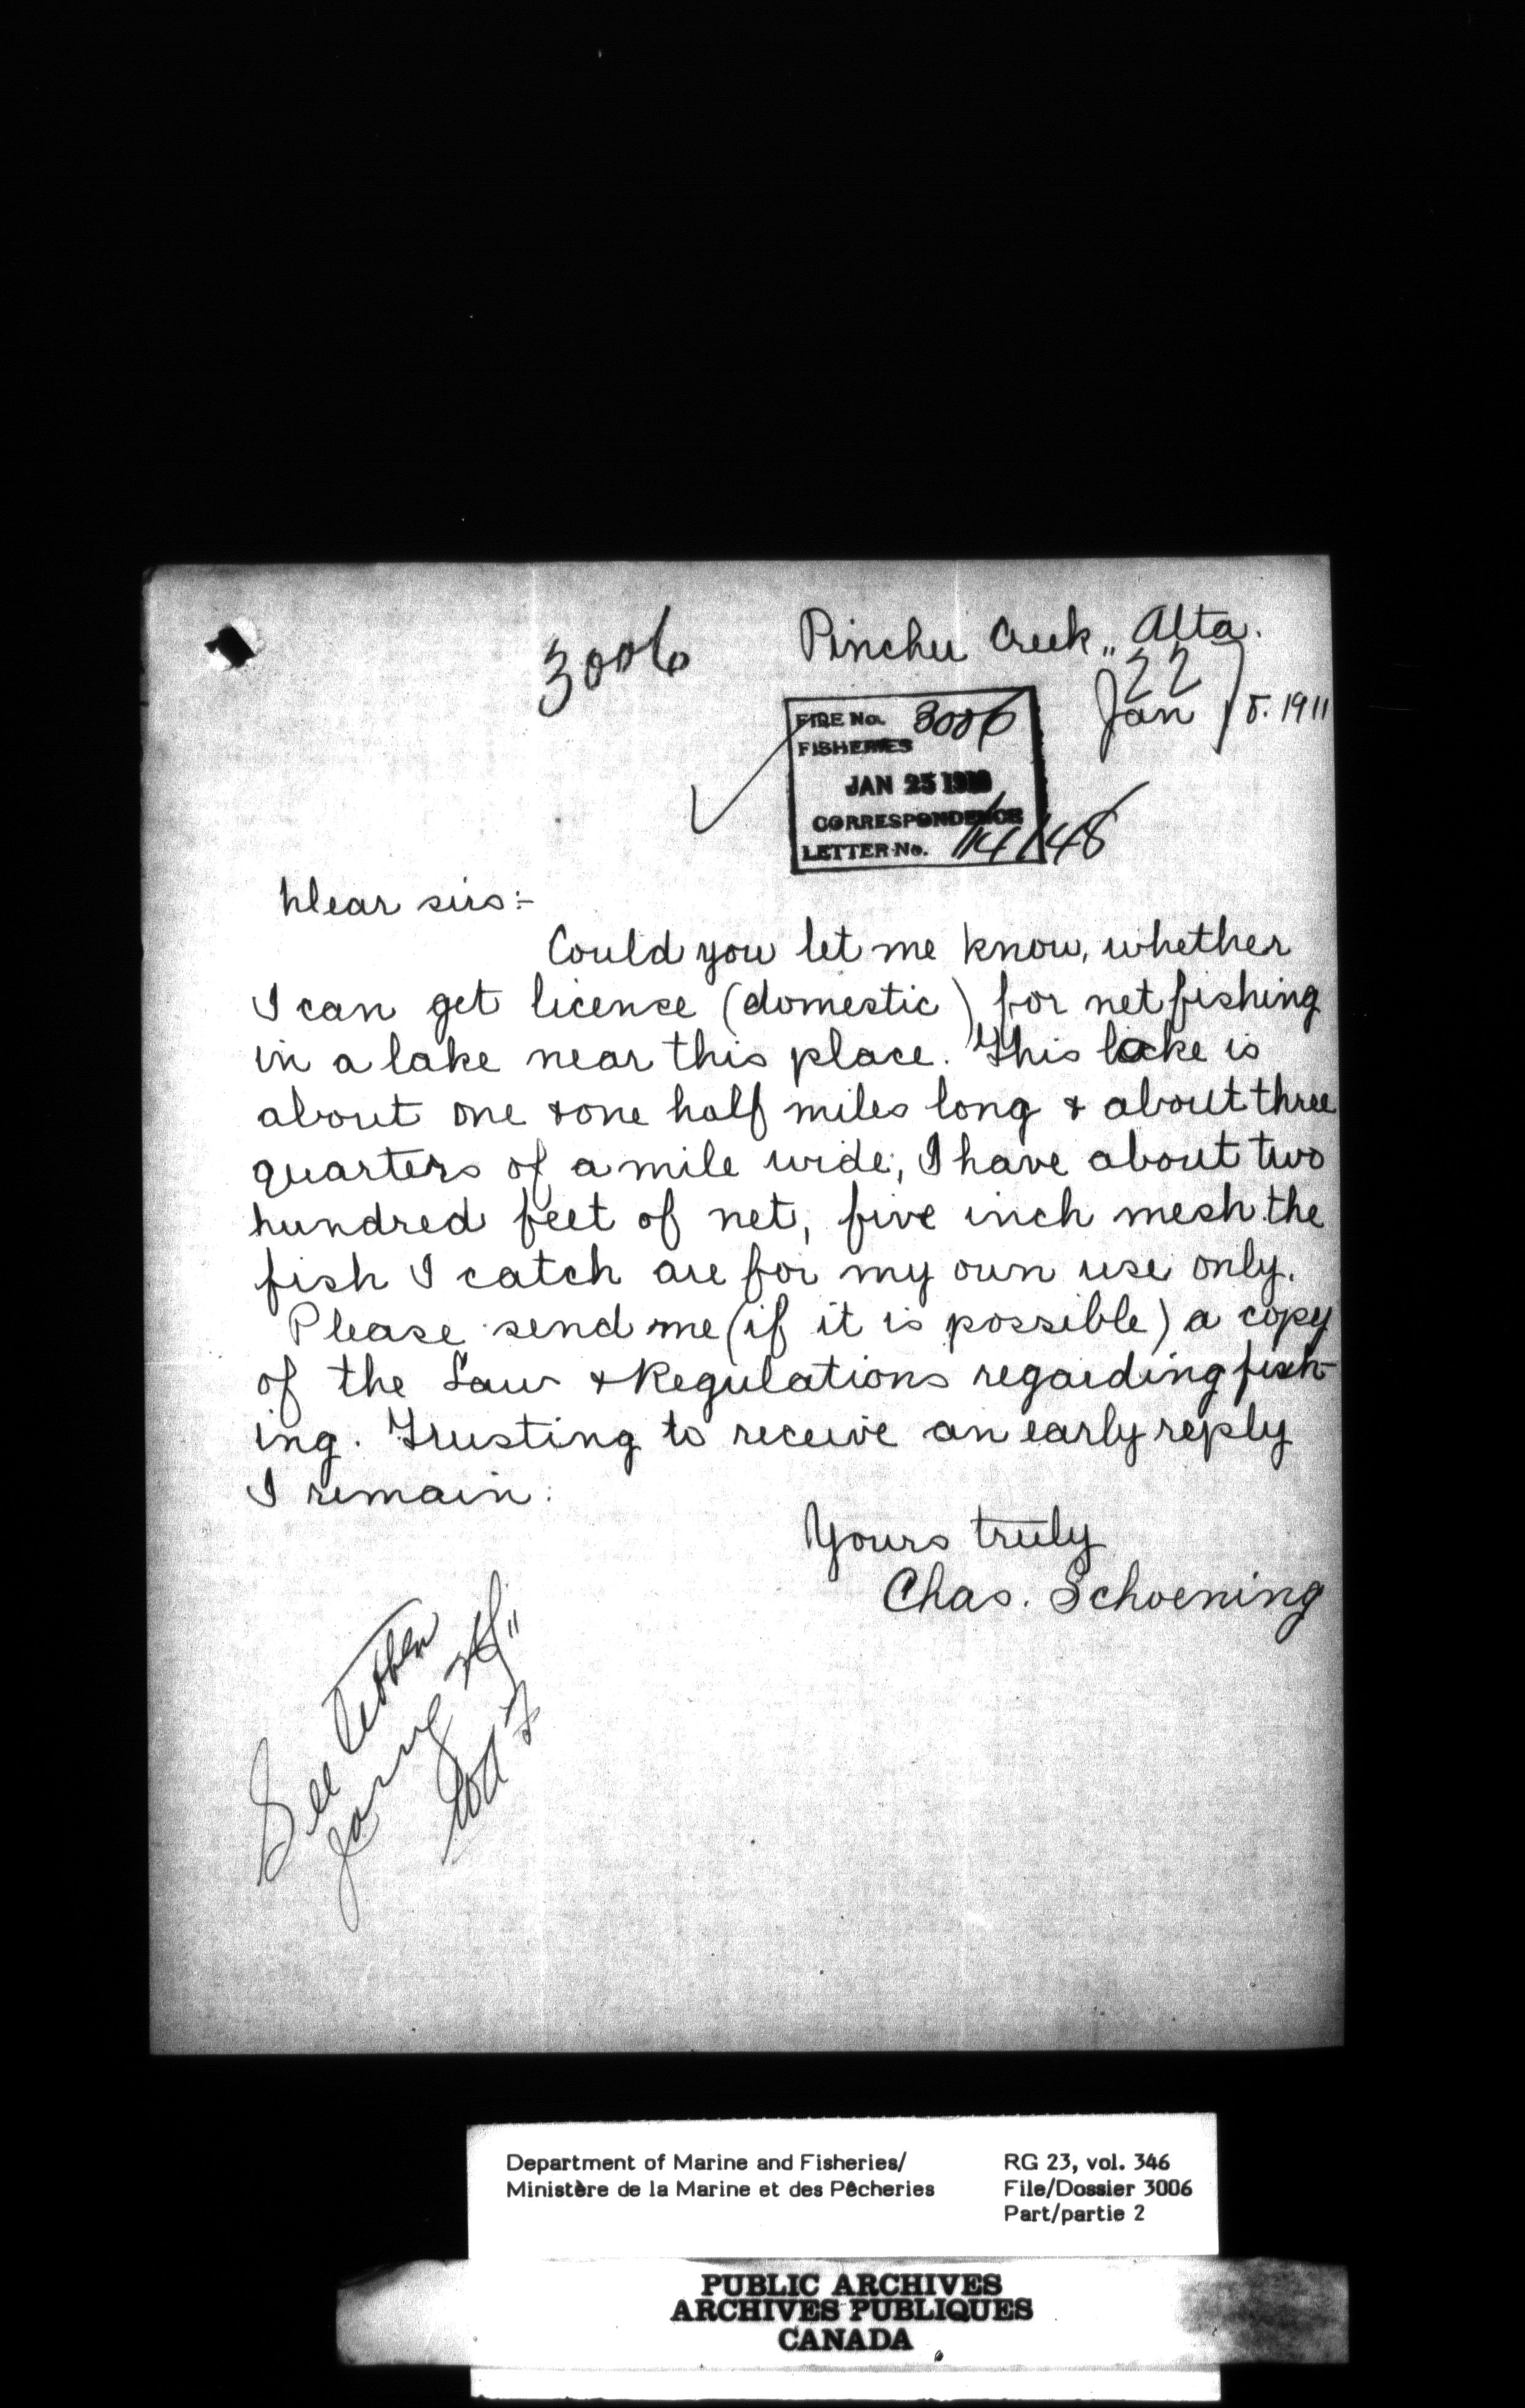 3006
Pincher Creek, Alta.
22
Jan 18. 1911
FILE No. 3006
FISHERIES
JAN 25
CORRESPONDENCE
LETTER No. 114148
Dear sirs:-
Could you let me know, whether
I can get license (domestic) for net fishing
in a lake near this place. This lake is
about one & one half miles long & about three
quarters of a mile wide; I have about two
hundred feet of net, five inch mesh the
fish I catch are for my own use only.
Please send me (if it is possible) a copy
of the Law & Regulations regarding fish-
ing. Trusting to receive an early reply
I remain.
Yours truly
Chas. Schoening
See
Department of Marine and Fisheries/
Ministère de la Marine et des Pêcheries
RG 23, vol. 346
File/Dossier 3006
Part/partie 2
PUBLIC ARCHIVES
ARCHIVES PUBLIQUES
CANADA